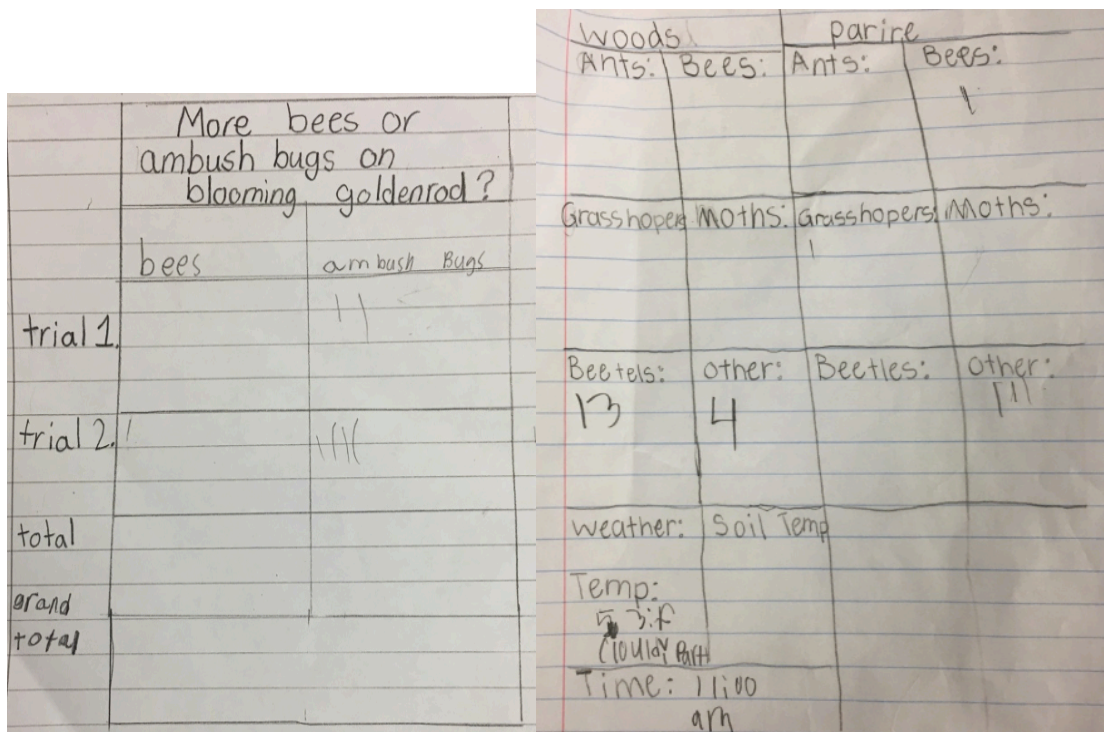 More bees or
ambush bugs on
blooming goldenrod?
bees ambush Bugs
trial 1. ||
trial 2. | ||||
total
grand
total
woods parire
Ants: Bees: Ants: Bees:
|
Grasshopers Moths: Grasshopers: Moths:
|
Beetels: other: Beetles: other:
13 4 ||||
weather: Soil Temp
Temp:
Time: 11:00
am